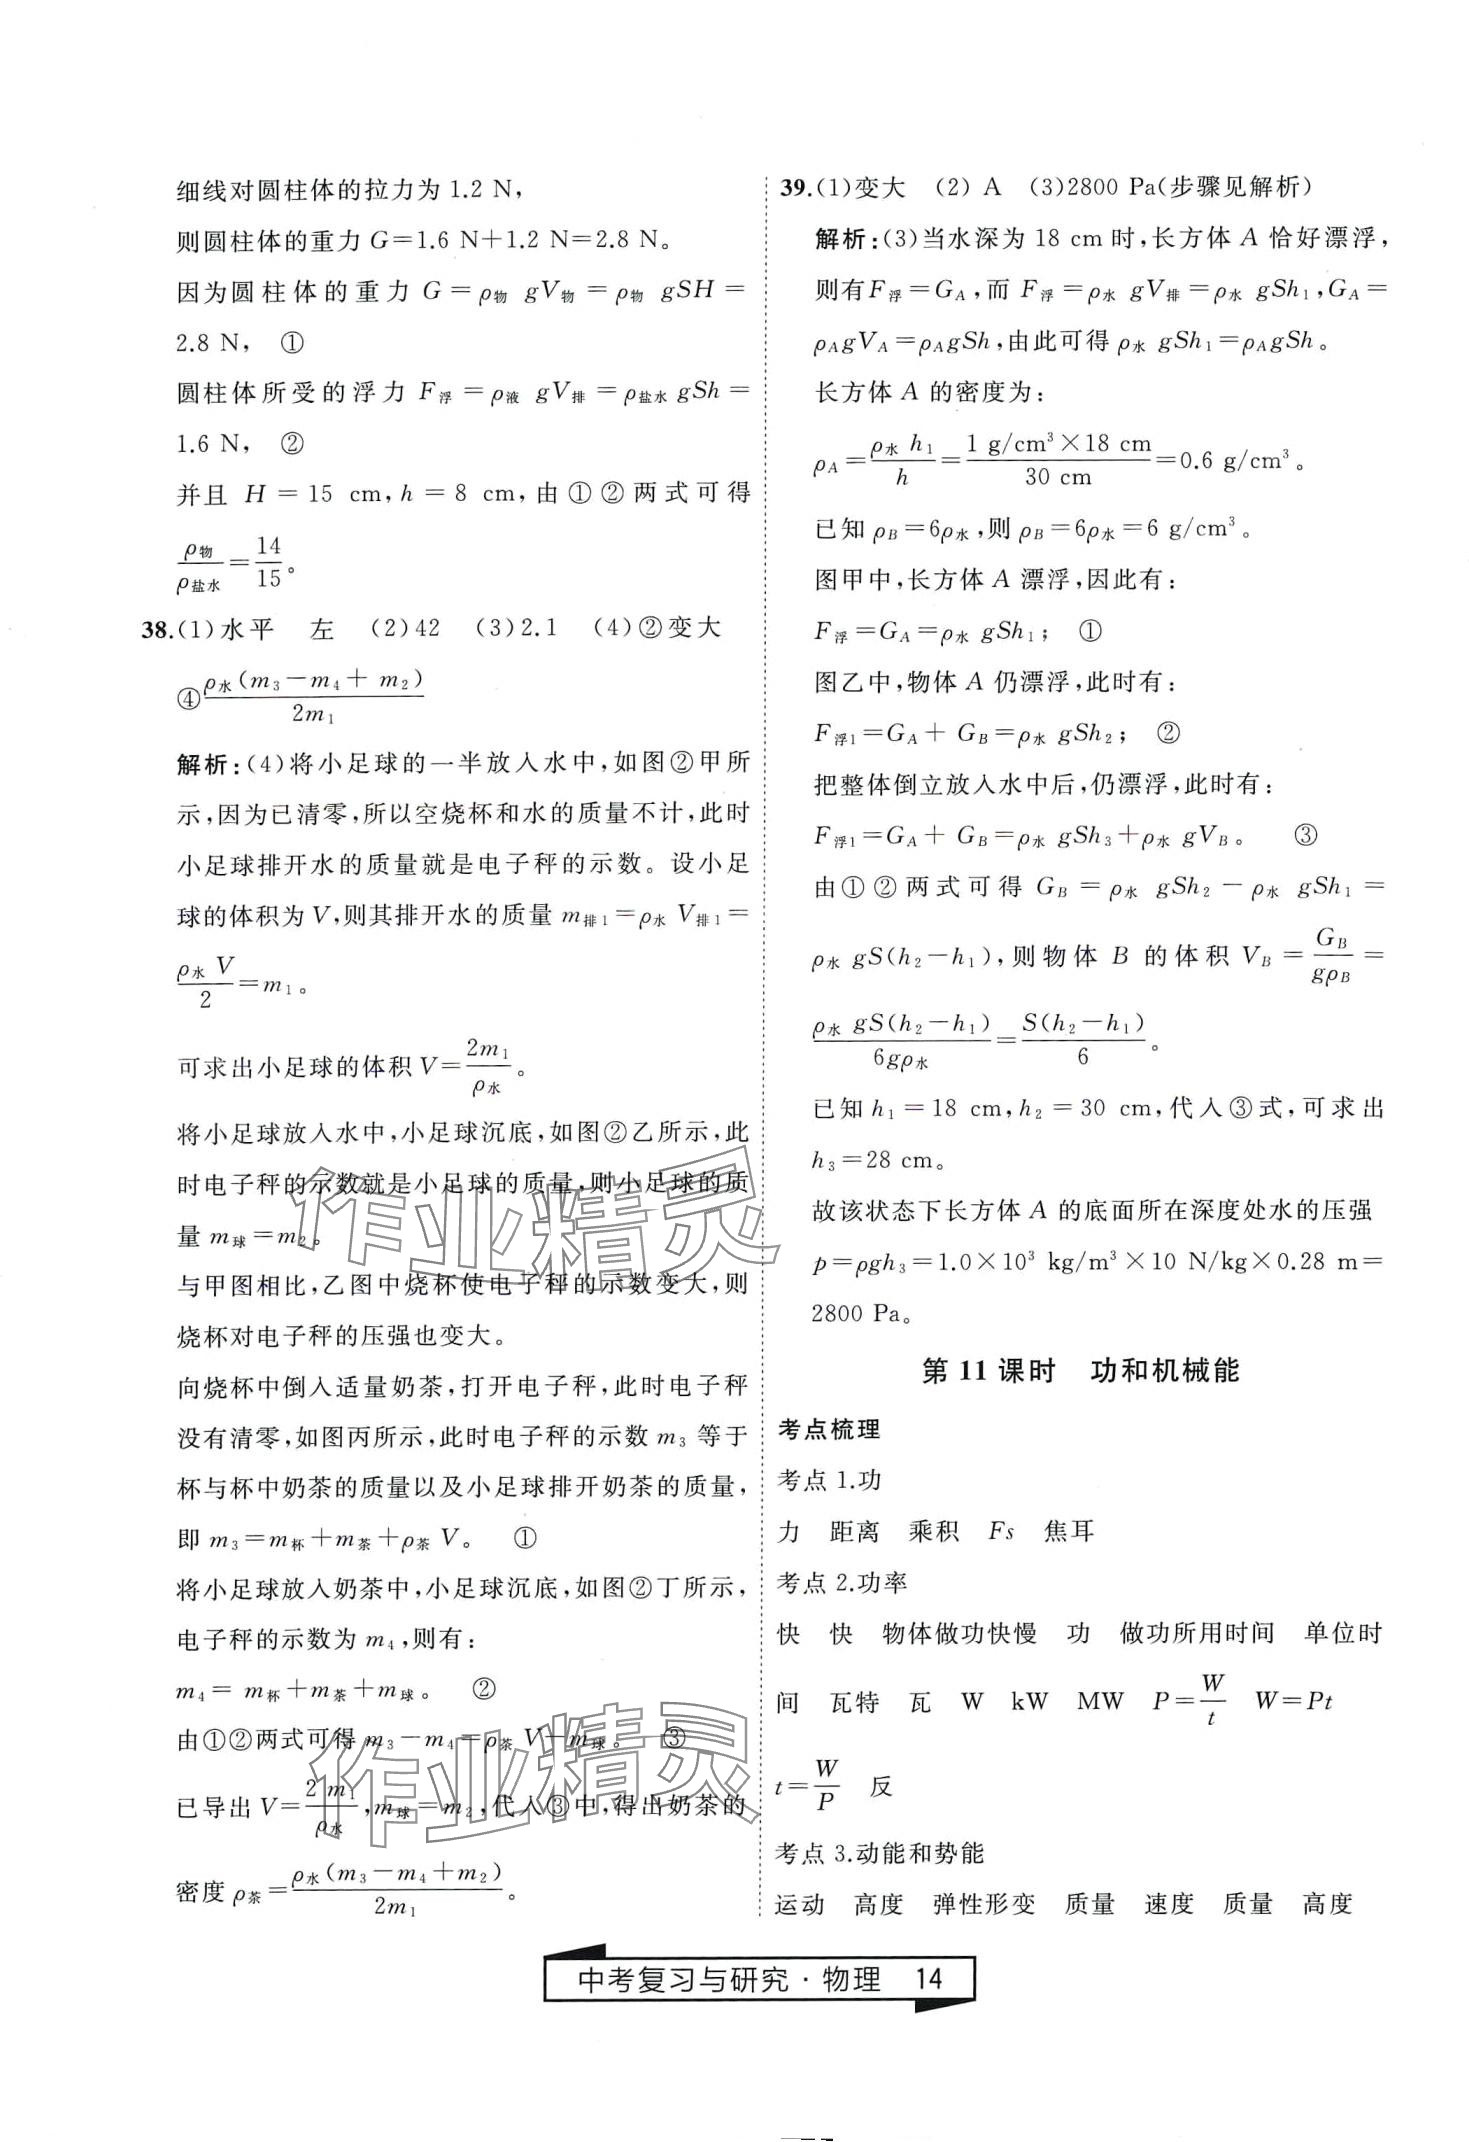 细线对圆柱体的拉力为 1.2 N,
则圆柱体的重力 G=1.6 N+1.2 N=2.8 N。
因为圆柱体的重力 G=ρ物 gV物=ρ物 gSH=
2.8 N, ①
圆柱体所受的浮力 F浮=ρ液 gV排=ρ盐水 gSh=
1.6 N, ②
并且 H=15 cm,h=8 cm,由①②两式可得
ρ物/ρ盐水=14/15。
38.(1)水平 左 (2)42 (3)2.1 (4)②变大
④ρ水(m3-m4+m2)/2m1
解析:(4)将小足球的一半放入水中,如图②甲所
示,因为已清零,所以空烧杯和水的质量不计,此时
小足球排开水的质量就是电子秤的示数。设小足
球的体积为 V,则其排开水的质量 m排1=ρ水 V排1=
ρ水 V/2=m1。
可求出小足球的体积 V=2m1/ρ水。
将小足球放入水中,小足球沉底,如图②乙所示,此
时电子秤的示数就是小足球的质量,则小足球的质
量 m球=m2。
与甲图相比,乙图中烧杯使电子秤的示数变大,则
烧杯对电子秤的压强也变大。
向烧杯中倒入适量奶茶,打开电子秤,此时电子秤
没有清零,如图丙所示,此时电子秤的示数 m3 等于
杯与杯中奶茶的质量以及小足球排开奶茶的质量,
即 m3=m杯+m茶+ρ茶 V。 ①
将小足球放入奶茶中,小足球沉底,如图②丁所示,
电子秤的示数为 m4,则有:
m4= m杯+m茶+m球。 ②
由①②两式可得 m3-m4=ρ茶 V-m球。 ③
已导出 V=2 m1/ρ水,m球=m2,代入③中,得出奶茶的
密度 ρ茶=ρ水(m3-m4+m2)/2m1。
39.(1)变大 (2) A (3)2800 Pa(步骤见解析)
解析:(3)当水深为 18 cm 时,长方体 A 恰好漂浮,
则有F浮=GA,而 F浮=ρ水 gV排=ρ水 gSh1,GA=
ρAgVA=ρAgSh,由此可得 ρ水 gSh1=ρAgSh。
长方体 A 的密度为:
ρA=ρ水 h1/h=1 g/cm³×18 cm/30 cm=0.6 g/cm³。
已知 ρB=6ρ水,则 ρB=6ρ水=6 g/cm³。
图甲中,长方体 A 漂浮,因此有:
F浮=GA=ρ水 gSh1; ①
图乙中,物体 A 仍漂浮,此时有:
F浮1=GA+ GB=ρ水 gSh2; ②
把整体倒立放入水中后,仍漂浮,此时有:
F浮1=GA+ GB=ρ水 gSh3+ρ水 gVB。 ③
由①②两式可得 GB=ρ水 gSh2-ρ水 gSh1=
ρ水 gS(h2-h1),则物体 B 的体积 VB=GB/gρB=
ρ水 gS(h2-h1)/6gρ水=S(h2-h1)/6。
已知 h1=18 cm,h2=30 cm,代入③式,可求出
h3=28 cm。
故该状态下长方体 A 的底面所在深度处水的压强
p=ρgh3=1.0×10³ kg/m³×10 N/kg×0.28 m=
2800 Pa。
第 11 课时 功和机械能
考点梳理
考点 1.功
力 距离 乘积 Fs 焦耳
考点 2.功率
快 快 物体做功快慢 功 做功所用时间 单位时
间 瓦特 瓦 W kW MW P=W/t W=Pt
t=W/P 反
考点 3.动能和势能
运动 高度 弹性形变 质量 速度 质量 高度
作业精灵
作业精灵
中考复习与研究·物理 14